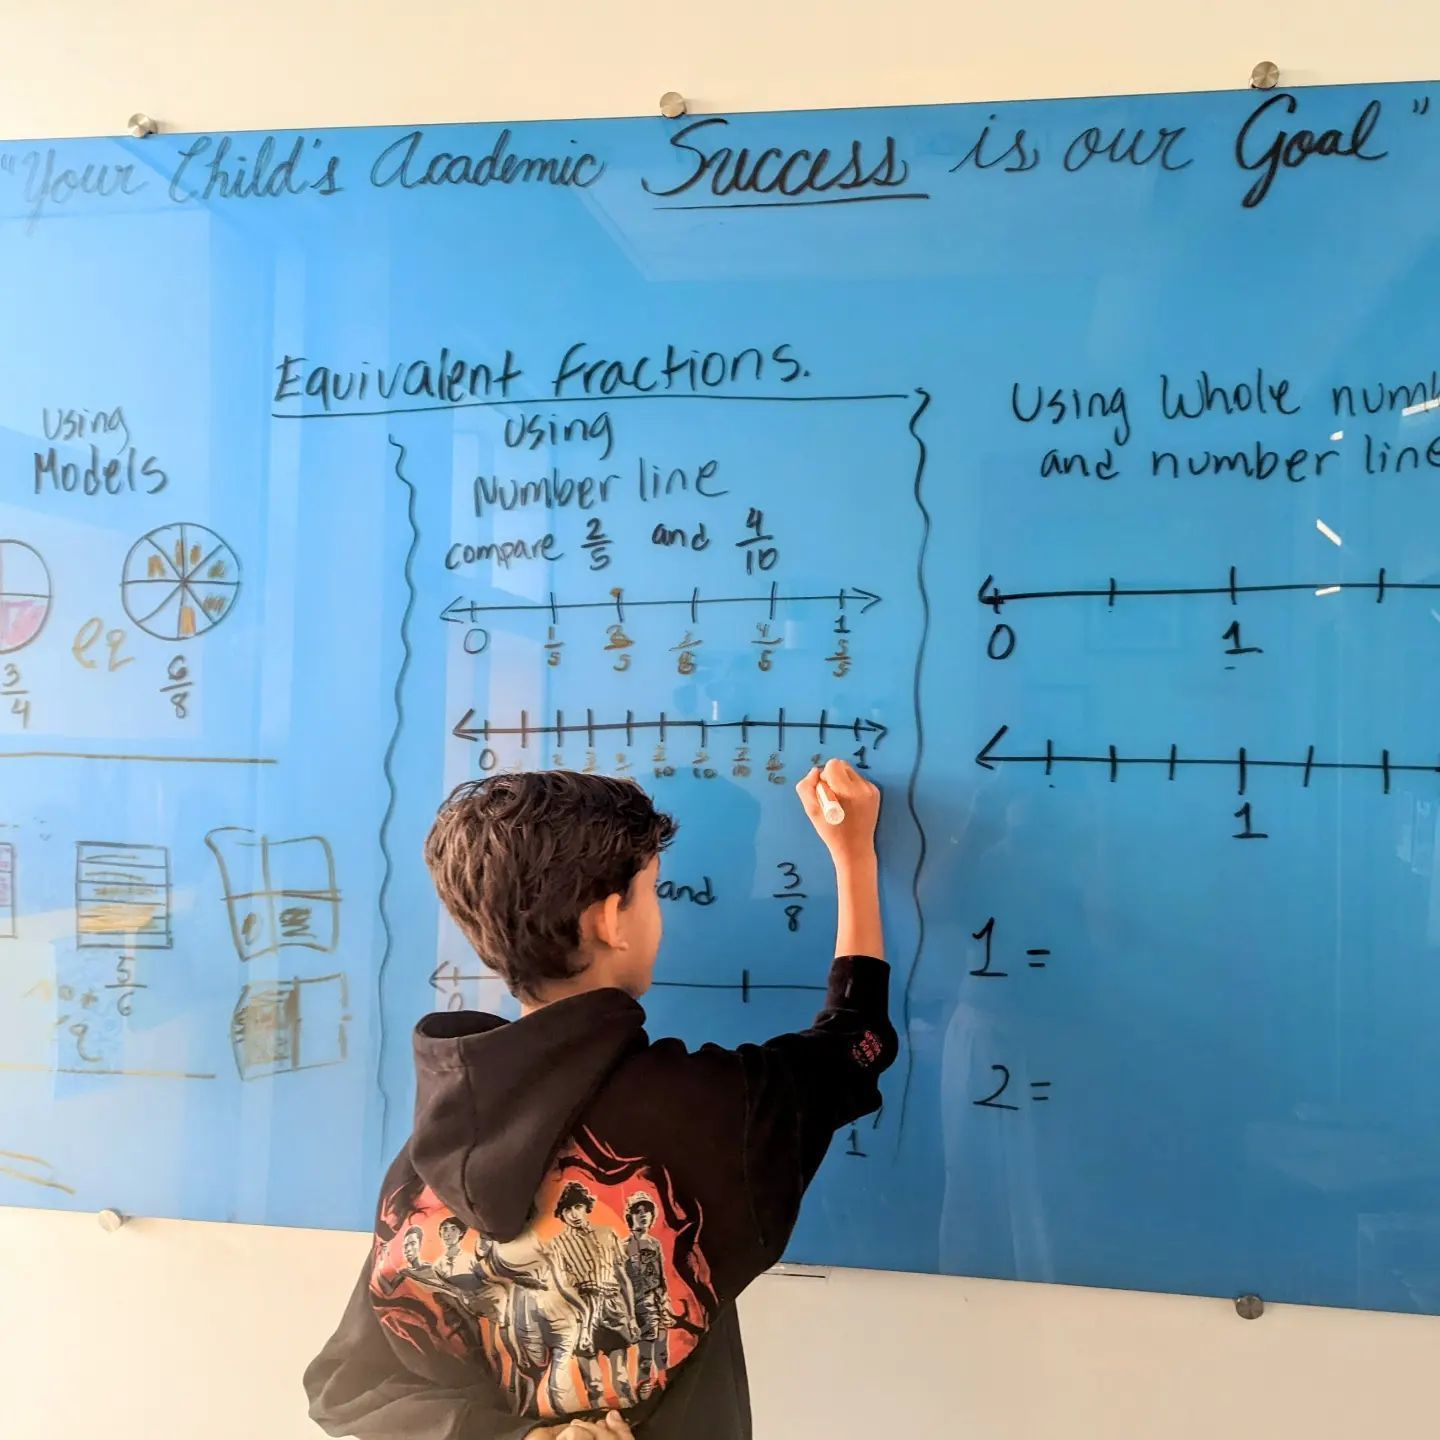 "Your Child's Academic Success is our Goal"
Equivalent Fractions.
Using
Models
3/4
eq
6/8
5/6
Using
Number line
compare 2/5 and 4/10
0 1
1/5 2/5 3/5 4/5 5/5
0 1
and 3/8
0
1
Using Whole
and number line
0 1
1
1 =
2 =